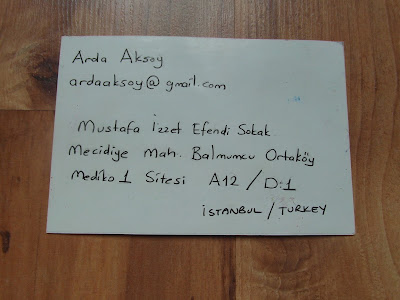 Arda Aksoy
ardaaksoy@gmail.com
Mustafa İzzet Efendi Sokak
Mecidiye Mah. Balmumcu Ortaköy
Mediko 1 Sitesi A12 / D:1
İSTANBUL / TURKEY